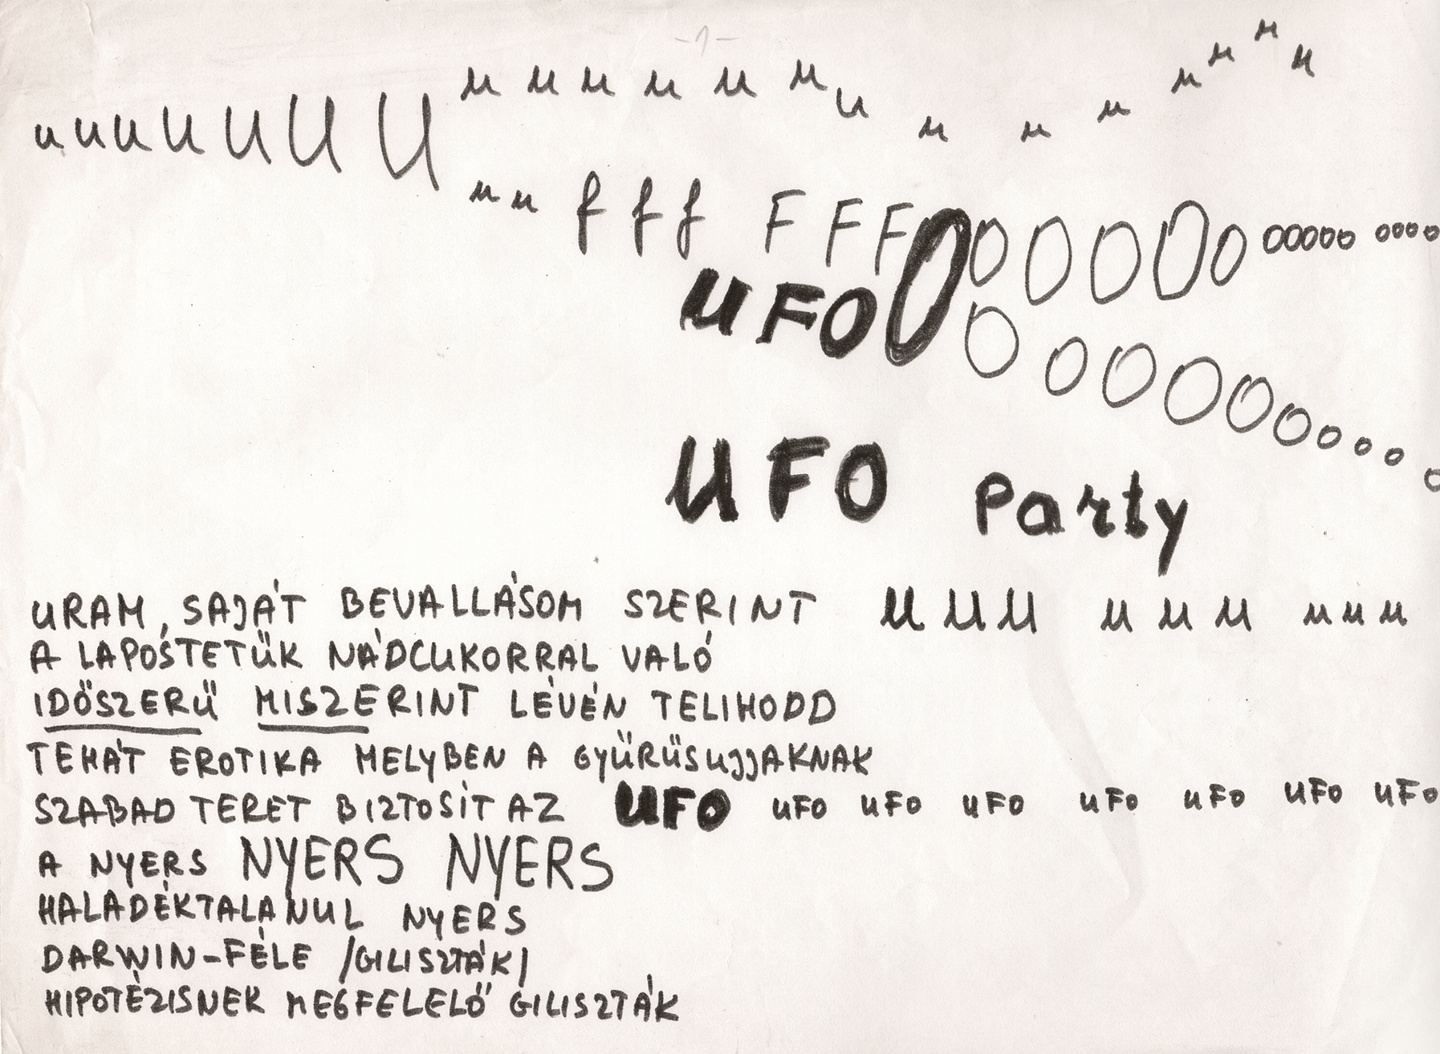 -1-
u u u u u U U u u u u u u u u u u u u u u
u u f f f F F F O O O O O O o o o o o o o o o
UFO O O O O O O o o o o
UFO Party
URAM, SAJÁT BEVALLÁSOM SZERINT U U U u u u u u u
A LAPOSTETŰK NÁDCUKORRAL VALÓ
IDŐSZERŰ MISZERINT LÉVÉN TELIHODD
TEHÁT EROTIKA MELYBEN A GYŰRŰSUJJAKNAK
SZABAD TERET BIZTOSÍT AZ UFO UFO UFO UFO UFO UFO UFO UFO
A NYERS NYERS NYERS
HALADÉKTALANUL NYERS
DARWIN-FÉLE /GILISZTÁK/
HIPOTÉZISNEK MEGFELELŐ GILISZTÁK